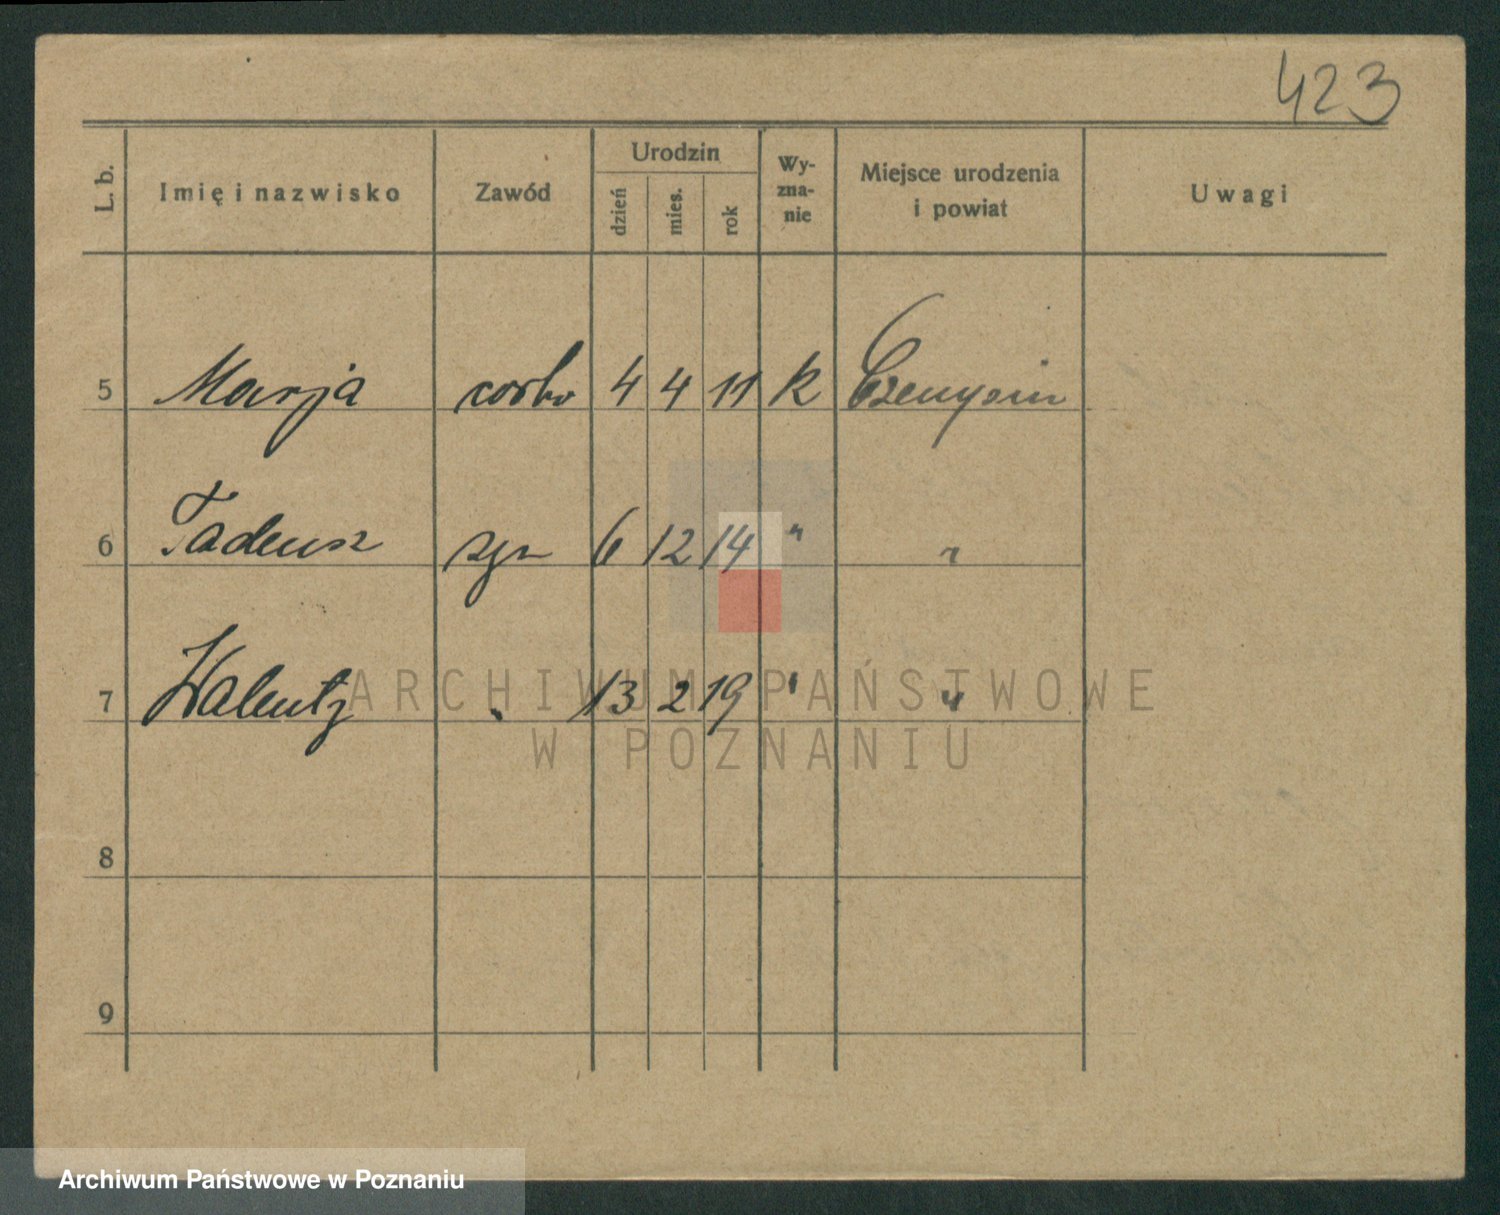 423
L. b. Imię i nazwisko Zawód Urodzin dzień mies. rok Wy-zna-nie Miejsce urodzenia i powiat Uwagi
5 Marja córka 4 4 11 k
6 Tadeusz syn 6 12 14 " "
7 Walenty " 13 2 19 " "
8
9
ARCHIWUM PAŃSTWOWE
W POZNANIU
Archiwum Państwowe w Poznaniu